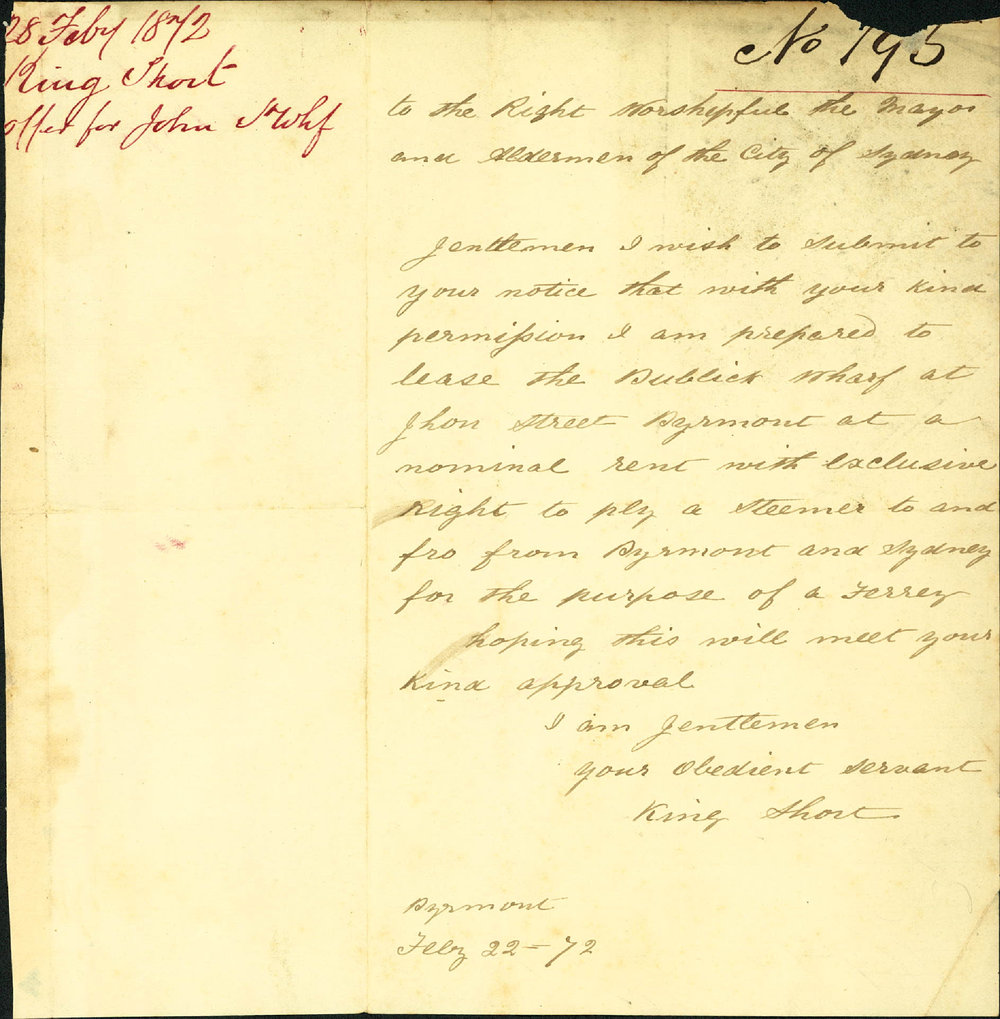 28 Feby 1872
King Short
offer for John St Whf
No 795
to the Right Worshipful the Mayor
and Aldermen of the City of Sydney
Jentlemen I wish to Submit to
your notice that with your kind
permission I am prepared to
lease the Publick Wharf at
Jhon Street Pyrmont at a
nominal rent with exclusive
Right to ply a Steemer to and
fro from Pyrmont and Sydney
for the purpose of a Ferrey
hoping this will meet your
Kind approval
I am Jentlemen
your Obedient Servant
King Short
Pyrmont
Feby 22 - 72